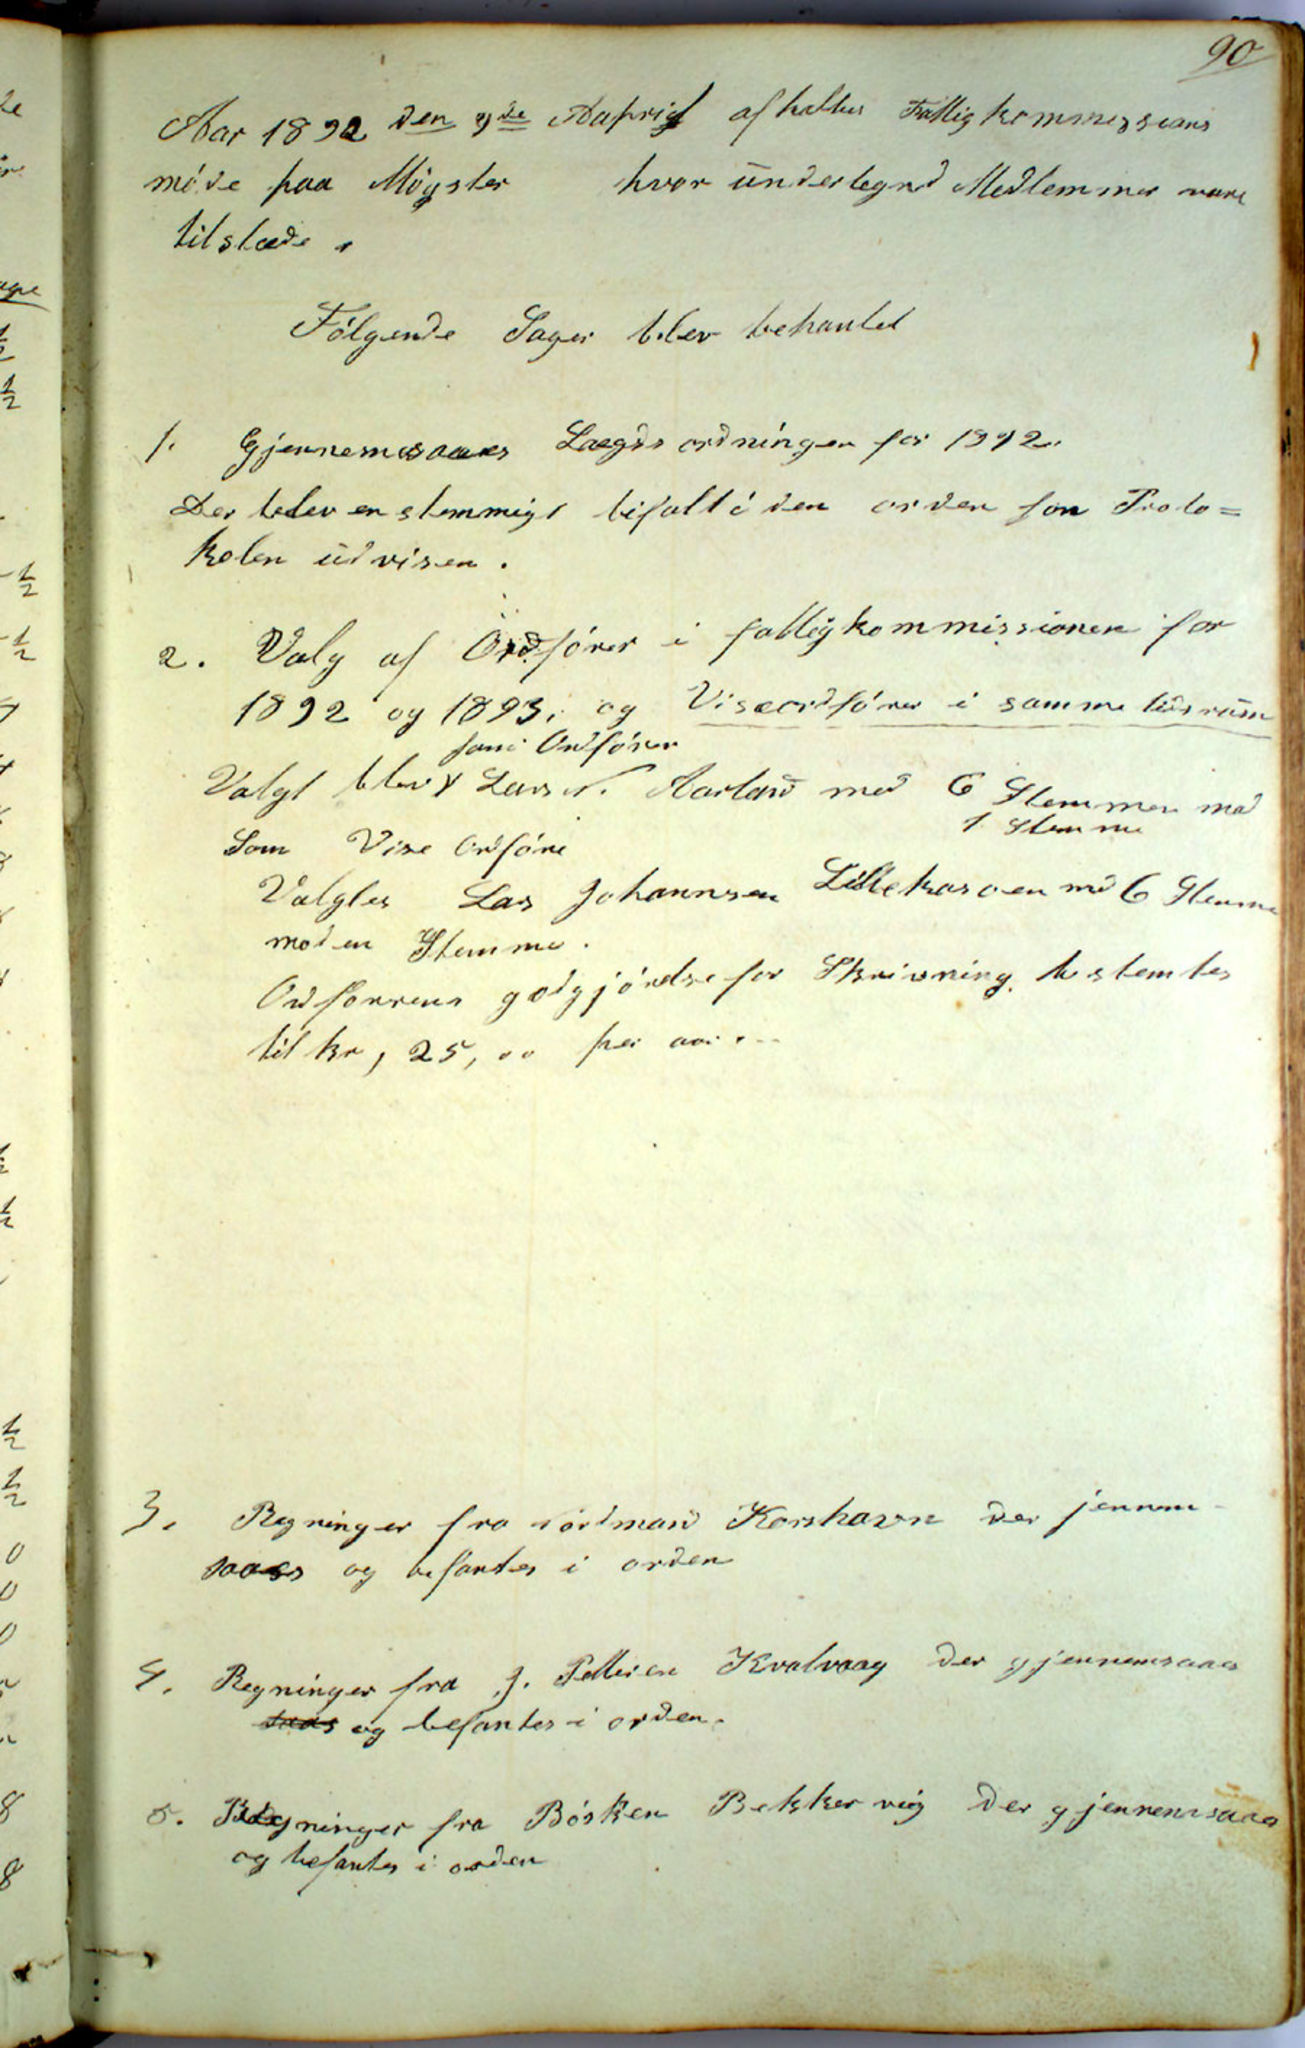 90
Aar 1892 den 9de Aaprigl afholtes Fattigkommissions
möde paa Møgster hvor undertegnd Medlemmer vare
tilstæde.
Følgende Sager blev behantlet
1. Gjennemsaaes Lægdsordningen for 1892.
Der blev enstemmigt bifalt i den orden som Proto=
kolen udviser.
2. Valg af Ordfører i fattigkommissionen for
1892 og 1893. og Viseordfører i samme tidsrum
som Ordfører
Valgt blev Lars N. Aarland med 6 Stemmer mod
1 Stemme
Som Vise Ordføre
Valgtes Lars Johannsen Lillekarsøen md 6 Stemme
mod en Stemme.
Ordførrens godgjørelse for Skrivning bestemtes
til kr, 25,00 per aar.
3. Regninger fra Nordmand Korshavn der jennem-
saaes og befantes i orden
4. Regninger fra J. Pettersen Kvalvaag der gjennemsaaes
saas og befantes i orden.
5. Regninger fra Børken Bekkervig der gjennemsaaes
og befantes i orden